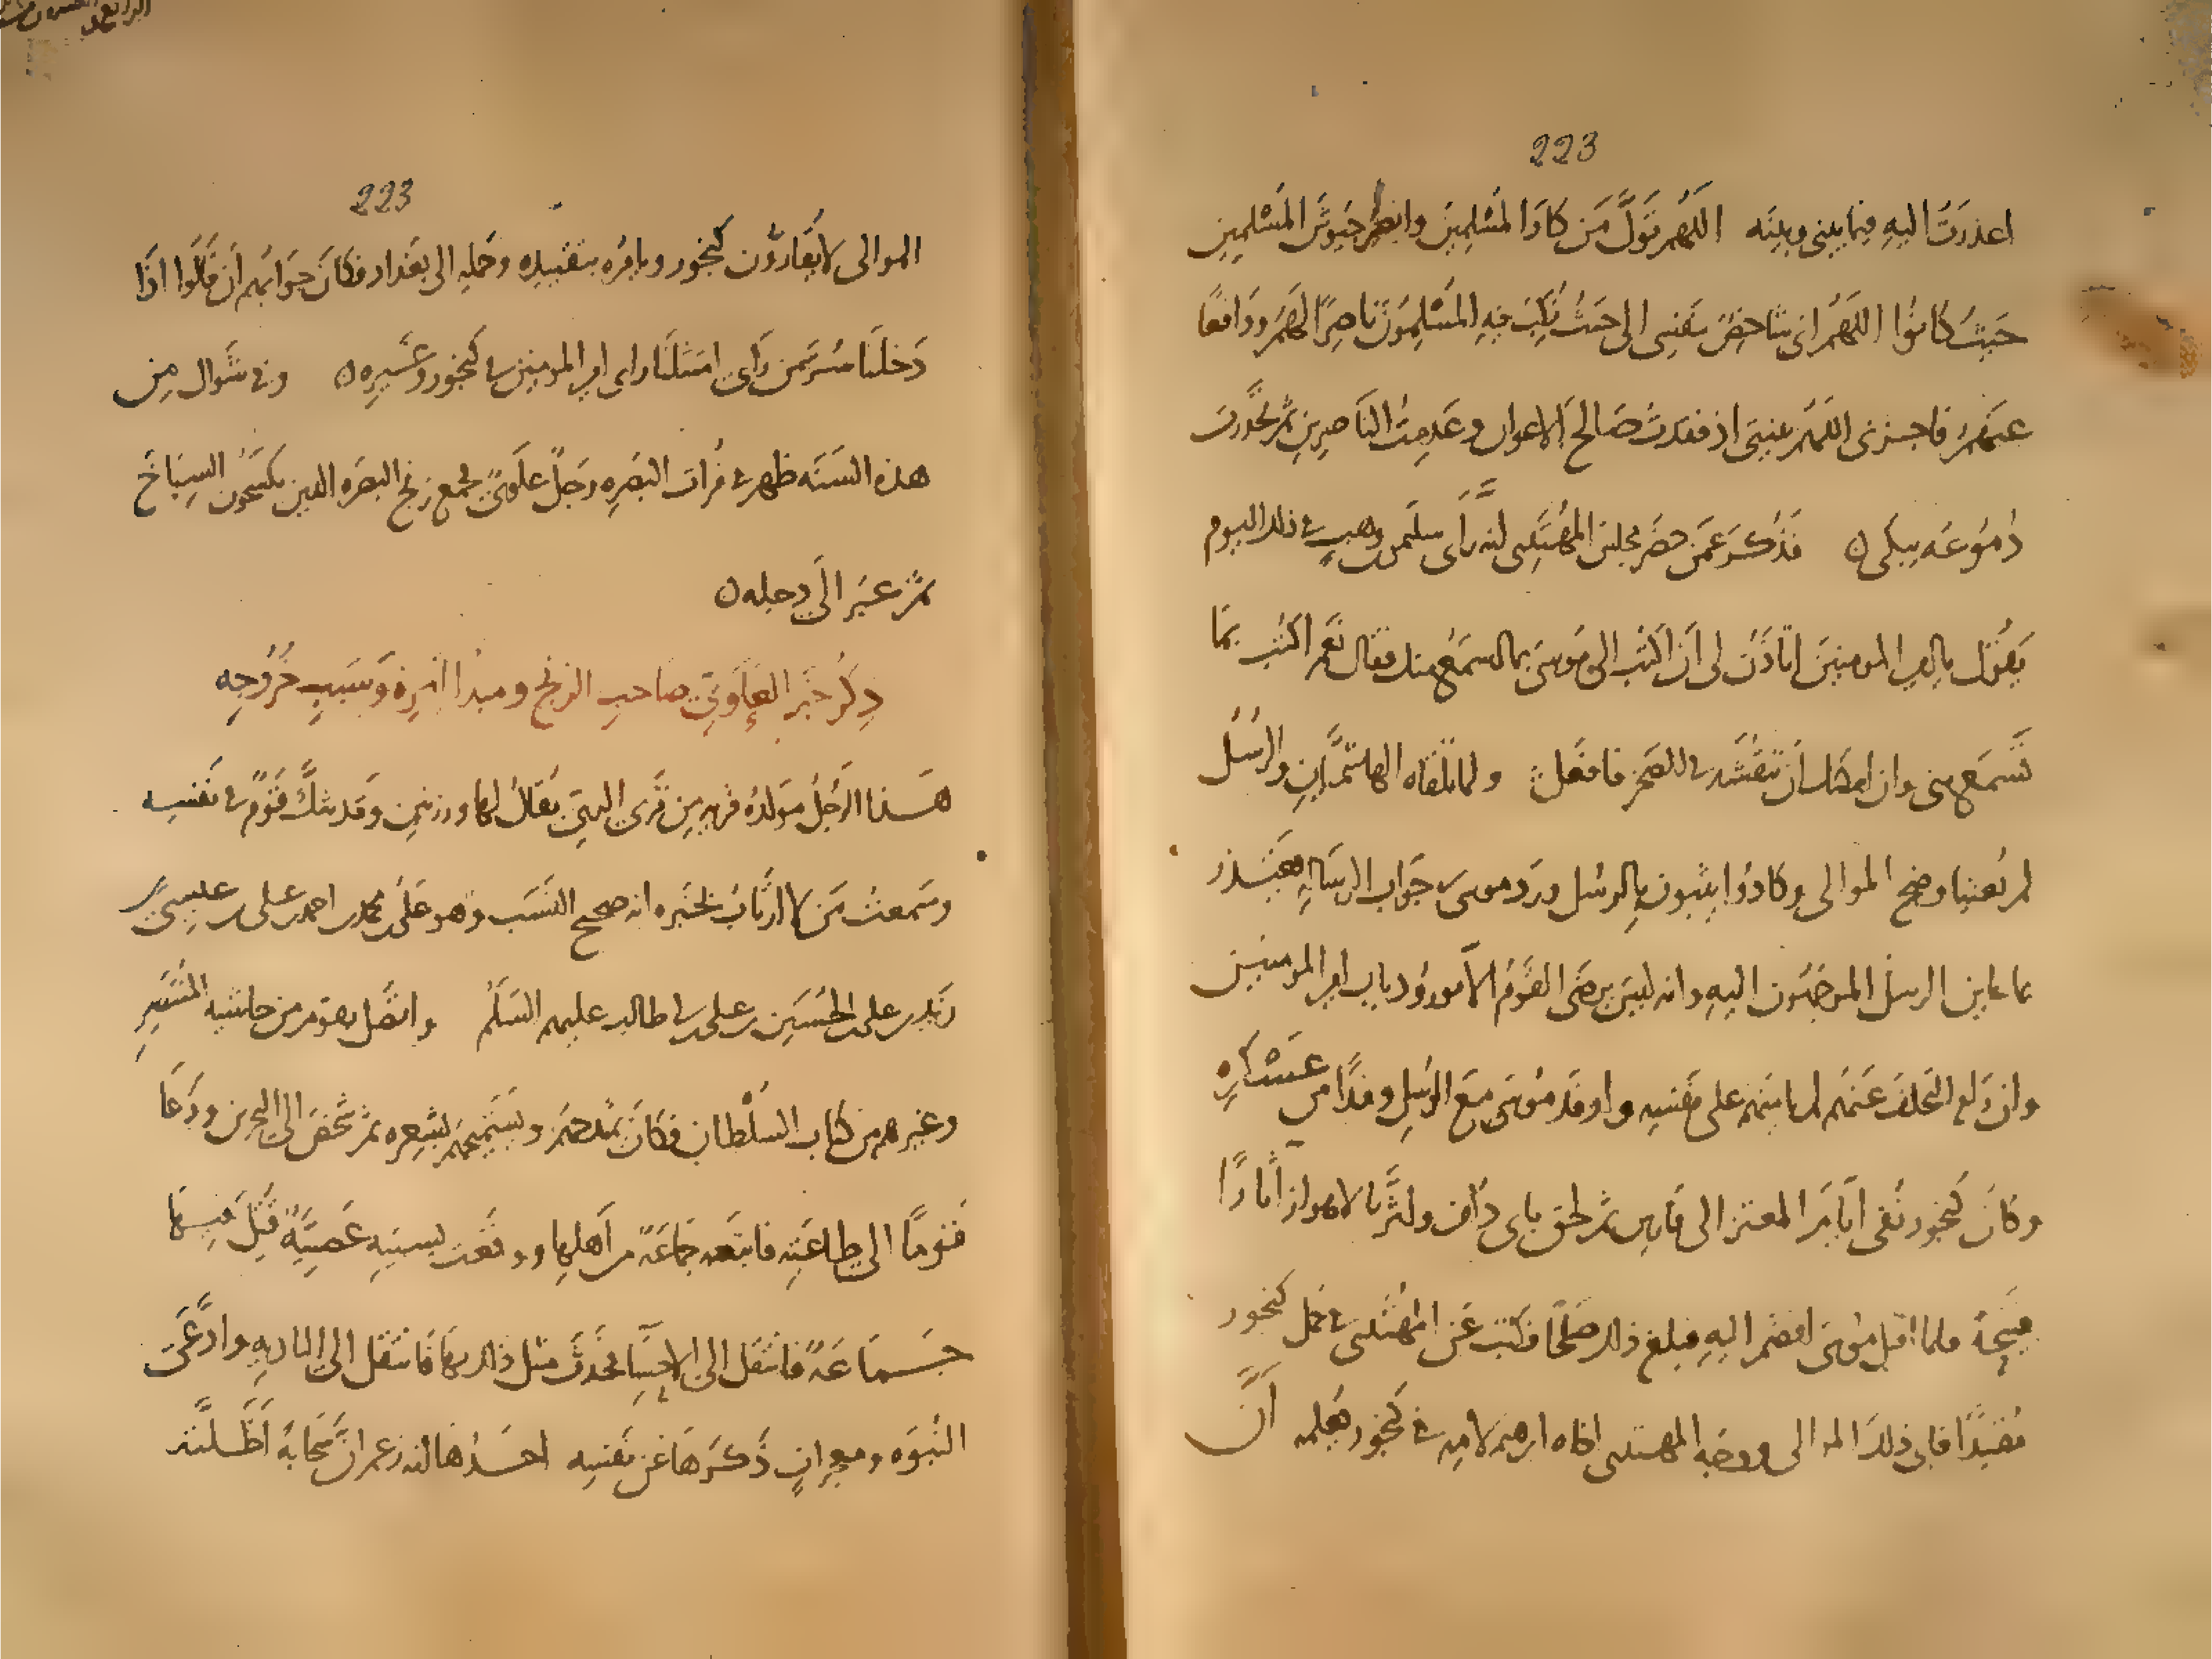 223
اعذرت اليه فيما بيني وبينه اللهم تول من كاد المسلمين وانصر جيوش المسلمين
حيث كانوا اللهم اني شاخص بنفسي الى حيث نكب فيه المسلمون ناصرا لهم ودافعا
عنهم فاجزني اللهم بنيتي اذ فقدت صالح الاعوان وعدمت الناصرين ثم تحدرت
دموعه يبكي ه فذكر عمن حضر مجلس المهتدي انه رأى سليمن بن وهب في ذلك اليوم
يقول يا امير المومنين اتاذن لي ان اكتب الى موسى بما اسمع منك فقال نعم اكتب بما
تسمع مني وان امكنك ان تنقشه في الصخر فافعل ولما تلقاه الهاشميان والرسل
لم يغنيا وضج الموالي وكادوا يثبون بالرسل ورد موسى جواب الرسالة يعتذر
بما عاين الرسل الموجهون اليه وانه ليس يرضى القوم الا ورود باب امير المومنين
وان رام التخلف عنهم لم يامنهم على نفسه واوفد موسى مع الرسل وفدا من عسكره
وكان كنجور نفي ايام المعتز الى فارس ثم لحق بابن ابي دلف واثر بالاهواز اثارا
قبيحة فلما اقبل موسى انضم اليه فبلغ ذلك صالحا فكتب عن المهتدي في حمل كنجور
مقيدا فابى ذلك الموالي ووجه المهتدي اخاه ابرهيم لامه في كنجور يعلمه ان
223
الموالي لا يقارون كنجور ويامره بتقييده وحمله الى بغداد فكان جوابهم ان قالوا اذا
دخلنا سر من راى امتثلنا راي امير المومنين في كنجور وغيره ه وفي شوال من
هذه السنه ظهر في فرات البصره رجل علوي فجمع زنج البصره الذين يكسحون السباخ
ثم عبر الى دجله ه
ذكر خبر العلوي صاحب الزنج ومبدا امره وسبب خروجه
هذا الرجل مولده قريه من قرى الري يقال لها ورزنين وقد شك قوم في نفسه
وسمعت من لا ارتاب بخبره انه صحيح النسب وهو علي بن محمد بن احمد بن علي بن عيسى بن
زيد بن علي بن الحسين بن علي بن ابي طالب عليهم السلم واتصل بقوم من حاشية المنتصر
وغيرهم من كتاب السلطان فكان يمدحهم ويستميحهم بشعره ثم شخص الى البحرين ودعا
قوما الى طاعته فاتبعه جماعة من اهلها ووقعت بسببه عصبية قتل فيها
جماعة فانتقل الى الاحسا فحدث مثل ذلك بها فانتقل الى الباديه وادعى
النبوه ومعجزات ذكرها عن نفسه احدها انه زعم ان سحابة اظلته